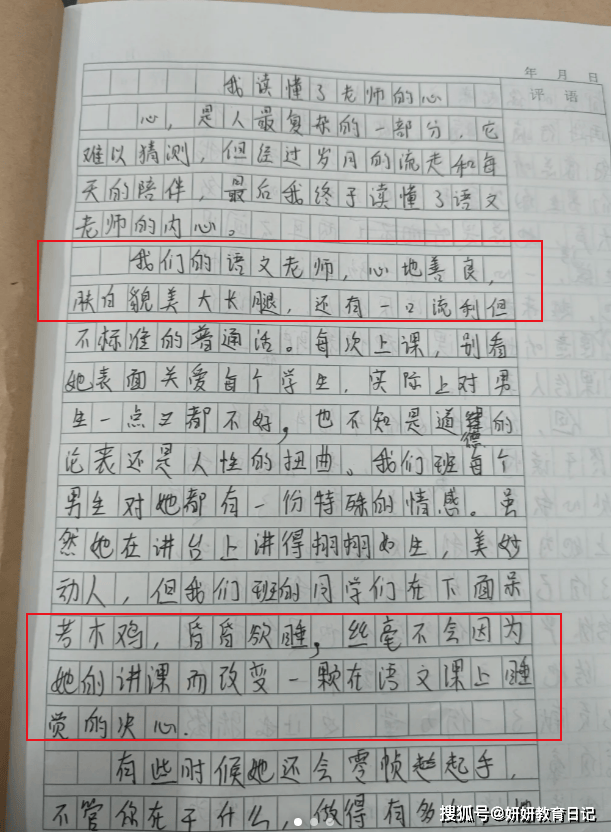 年 月 日
评 语
我读懂了老师的心
心,是人最复杂的一部分,它
难以猜测,但经过岁月的流走和每
天的陪伴,最后我终于读懂了语文
老师的内心。
我们的语文老师,心地善良,
肤白貌美大长腿,还有一口流利但
不标准的普通话。每次上课,别看
她表面关爱每个学生,实际上对男
生一点都不好,也不知是道德的
沦丧还是人性的扭曲。我们班每个
男生对她都有一份特殊的情感。虽
然她在讲台上讲得栩栩如生,美妙
动人,但我们班的同学们在下面呆
若木鸡,昏昏欲睡,丝毫不会因为
她的讲课而改变一颗在语文课上睡
觉的决心.
有些时候她还会零帧起手,
不管你在干什么,做得有多
搜狐号@妍妍教育日记